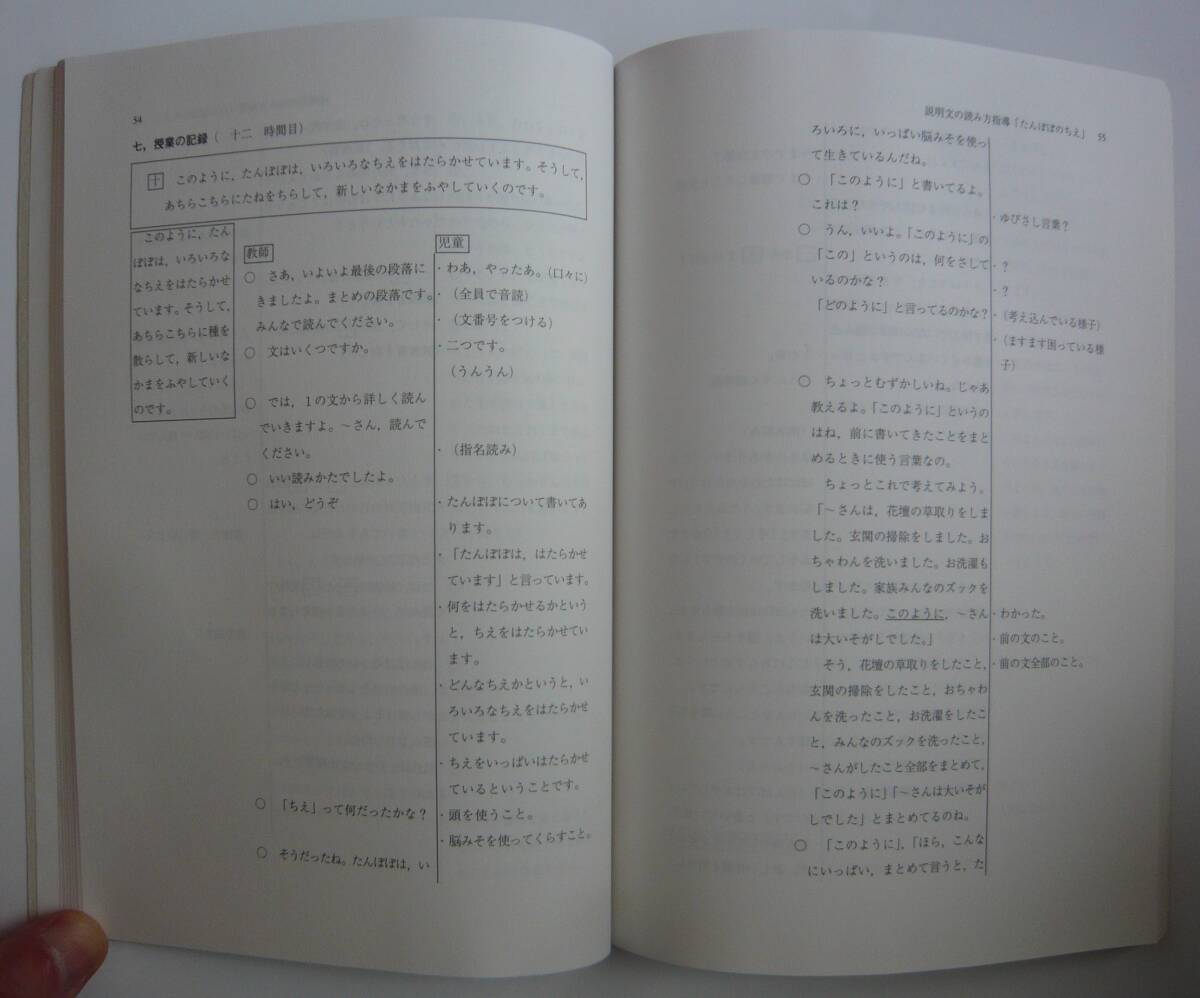 54
七，授業の記録（　十二　時間目）
十　このように，たんぽぽは，いろいろなちえをはたらかせています。そうして，
あちらこちらにたねをちらして，新しいなかまをふやしていくのです。
このように，たん
ぽぽは，いろいろな
なちえをはたらかせ
ています。そうして，
あちらこちらに種を
散らして，新しいな
かまをふやしていく
のです。
教師
○　さあ，いよいよ最後の段落に
きましたよ。まとめの段落です。
みんなで読んでください。
○　文はいくつですか。
○　では，１の文から詳しく読ん
でいきますよ。～さん，読んで
ください。
○　いい読みかたでしたよ。
○　はい，どうぞ
○　「ちえ」って何だったかな？
○　そうだったね。たんぽぽは，い
児童
・わあ，やったあ。（口々に）
・（全員で音読）
・（文番号をつける）
・二つです。
（うんうん）
・（指名読み）
・たんぽぽについて書いてあ
ります。
・「たんぽぽは，はたらかせ
ています」と言っています。
・何をはたらかせるかという
と，ちえをはたらかせてい
ます。
・どんなちえかというと，い
ろいろなちえをはたらかせ
ています。
・ちえをいっぱいはたらかせ
ているということです。
・頭を使うこと。
・脳みそを使ってくらすこと。
説明文の読み方指導「たんぽぽのちえ」　55
ろいろに，いっぱい脳みそを使っ
て生きているんだね。
○　「このように」と書いてるよ。
これは？
○　うん，いいよ。「このように」の
「この」というのは，何をさして
いるのかな？
「どのように」と言ってるのかな？
○　ちょっとむずかしいね。じゃあ
教えるよ。「このように」というの
はね，前に書いてきたことをまと
めるときに使う言葉なの。
ちょっとこれで考えてみよう。
「～さんは，花壇の草取りをしま
した。玄関の掃除をしました。お
ちゃわんを洗いました。お洗濯も
しました。家族みんなのズックを
洗いました。このように，～さん
は大いそがしでした。」
そう，花壇の草取りをしたこと，
玄関の掃除をしたこと，おちゃわ
んを洗ったこと，お洗濯をしたこ
と，みんなのズックを洗ったこと，
～さんがしたこと全部をまとめて，
「このように」「～さんは大いそが
しでした」とまとめてるのね。
○　「このように」，「ほら，こんな
にいっぱい，まとめて言うと，た
・ゆびさし言葉？
・？
・？
・（考え込んでいる様子）
・（ますます困っている様
子）
・わかった。
・前の文のこと。
・前の文全部のこと。